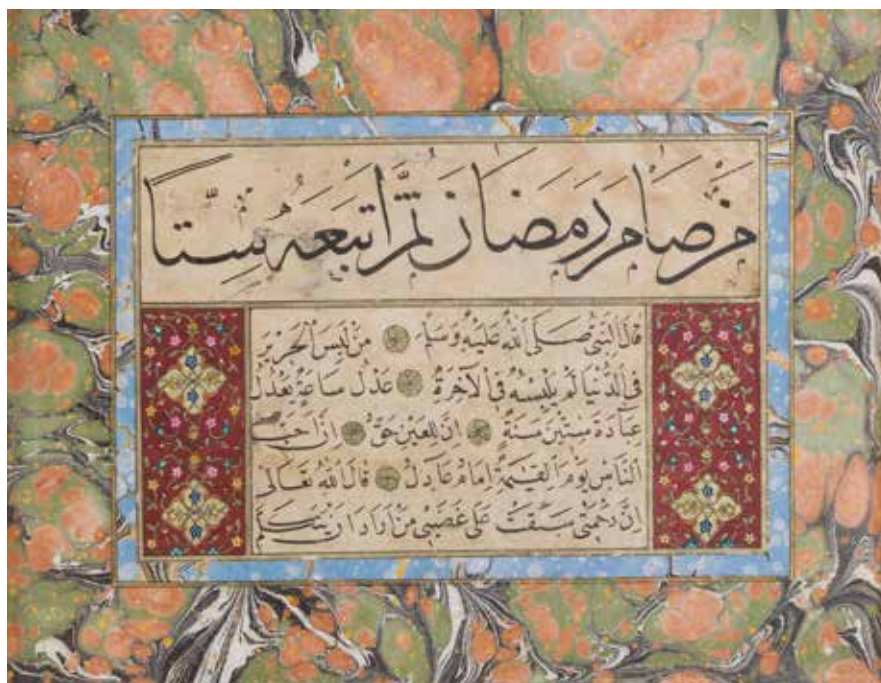 مَنْ صَامَ رَمَضَانَ ثُمَّ اَتْبَعَهُ سِتًّا
قَالَ النَّبِىُّ صَلَّى اللّٰهُ عَلَيْهِ وَسَلَّمَ مَنْ لَبِسَ الْحَرِيرَ
فِى الدُّنْيَا لَمْ يَلْبِسْهُ فِى الْآخِرَةِ عَدْلُ سَاعَةٍ يَعْدُلُ
عِبَادَةَ سِتِّينَ سَنَةٍ اِنَّ الْعَيْنَ حَقٌّ اِنَّ اَحَبَّ
النَّاسِ يَوْمَ الْقِيٰمَةِ اِمَامٌ عَادِلٌ قَالَ اللّٰهُ تَعَالٰى
اِنَّ رَحْمَتِى سَبَقَتْ عَلٰى غَضَبِى مَنْ اَرَادَ اَنْ يَسْلَمَ